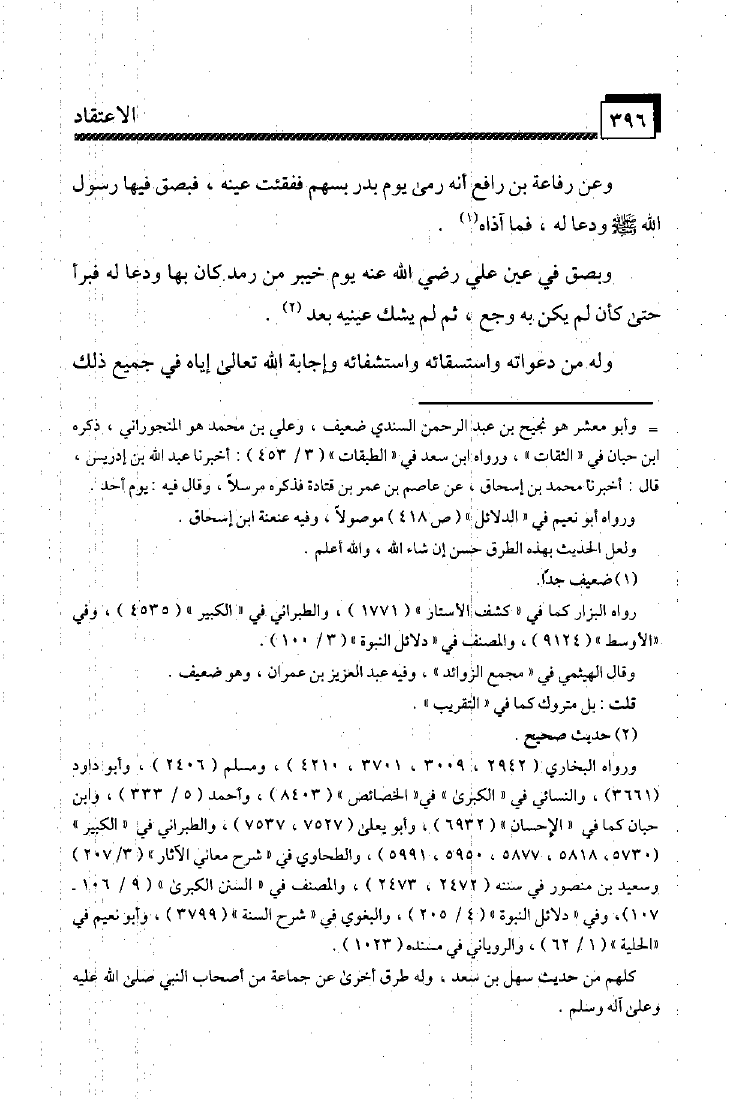 ٣٩٦
الاعتقاد
وعن رفاعة بن رافع أنه رمىٰ يوم بدر بسهم ففقئت عينه ، فبصق فيها رسول
الله ﷺ ودعا له ، فما آذاه(١) .
وبصق في عين علي رضي الله عنه يوم خيبر من رمد كان بها ودعا له فبرأ
حتىٰ كأن لم يكن به وجع ، ثم لم يشك عينيه بعد (٢) .
وله من دعواته واستسقائه واستشفائه وإجابة الله تعالىٰ إياه في جميع ذلك
= وأبو معشر هو نجيح بن عبد الرحمن السندي ضعيف ، وعلي بن محمد هو المنجوراني ، ذكره
ابن حبان في « الثقات » ، ورواه ابن سعد في « الطبقات » ( ٣ / ٤٥٣ ) : أخبرنا عبد الله بن إدريس ،
قال : أخبرنا محمد بن إسحاق ، عن عاصم بن عمر بن قتادة فذكره مرسلاً ، وقال فيه : يوم أحد .
ورواه أبو نعيم في « الدلائل » ( ص ٤١٨ ) موصولاً ، وفيه عنعنة ابن إسحاق .
ولعل الحديث بهذه الطرق حسن إن شاء الله ، والله أعلم .
(١) ضعيف جداً.
رواه البزار كما في « كشف الأستار » ( ١٧٧١ ) ، والطبراني في « الكبير » ( ٤٥٣٥ ) ، وفي
«الأوسط » ( ٩١٢٤ ) ، والمصنف في « دلائل النبوة » ( ٣ / ١٠٠ ) .
وقال الهيثمي في « مجمع الزوائد » ، وفيه عبد العزيز بن عمران ، وهو ضعيف .
قلت : بل متروك كما في « التقريب » .
(٢) حديث صحيح .
ورواه البخاري ( ٢٩٤٢ ، ٣٠٠٩ ، ٣٧٠١ ، ٤٢١٠ ) ، ومسلم ( ٢٤٠٦ ) ، وأبو داود
(٣٦٦١) ، والنسائي في « الكبرىٰ » في« الخصائص » ( ٨٤٠٣ ) ، وأحمد ( ٥ / ٣٣٣ ) ، وابن
حبان كما في « الإحسان » ( ٦٩٣٢ ) ، وأبو يعلىٰ ( ٧٥٢٧ ، ٧٥٣٧ ) ، والطبراني في « الكبير »
(٥٧٣٠، ٥٨١٨ ، ٥٨٧٧ ، ٥٩٥٠ ، ٥٩٩١ ) ، والطحاوي في « شرح معاني الآثار » ( ٣/ ٢٠٧ )
وسعيد بن منصور في سننه ( ٢٤٧٢ ، ٢٤٧٣ ) ، والمصنف في « السنن الكبرىٰ » ( ٩ / ١٠٦ ـ
١٠٧)، وفي « دلائل النبوة » ( ٤ / ٢٠٥ ) ، والبغوي في « شرح السنة » ( ٣٧٩٩ ) ، وأبو نعيم في
«الحلية » ( ١ / ٦٢ ) ، والروياني في مسنده ( ١٠٢٣ ) .
كلهم من حديث سهل بن سعد ، وله طرق أخرىٰ عن جماعة من أصحاب النبي صلىٰ الله عليه
وعلىٰ آله وسلم .